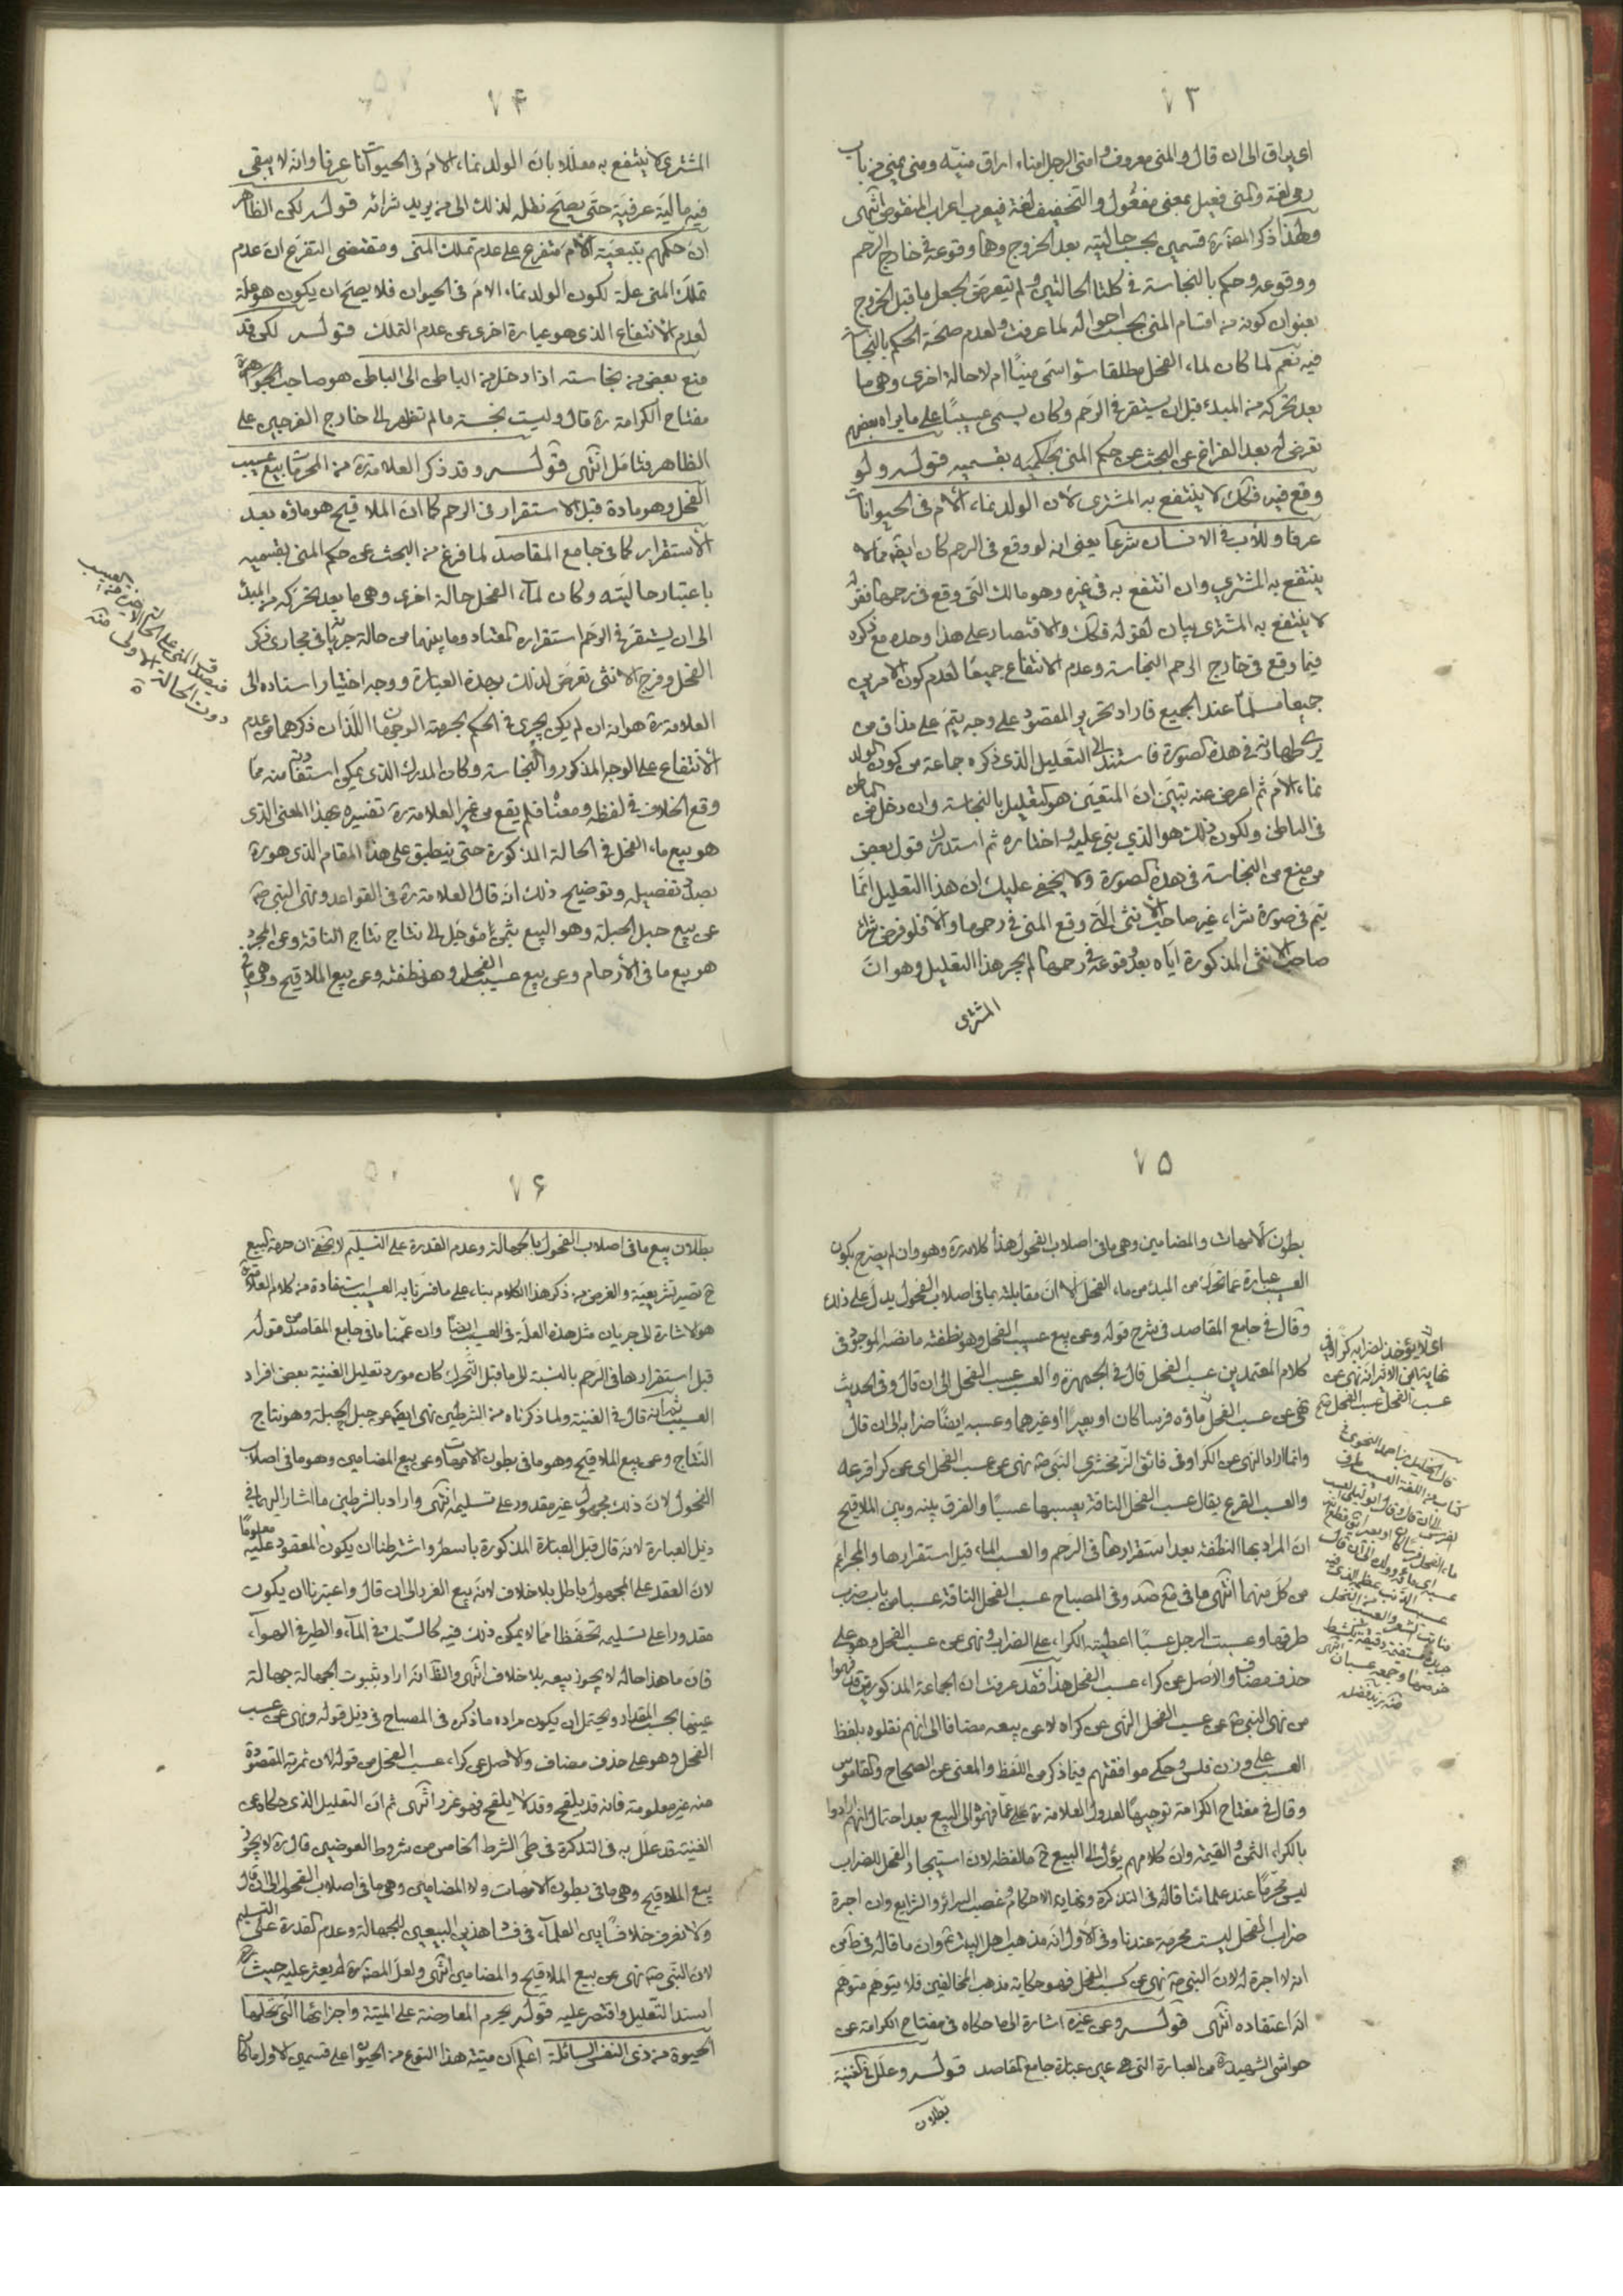 ٧٣
اى يراق الى ان قال و المنى معروف و امنى الرجل امناء اراق منيّه و منى يمنى من باب
رمى لغة و المنى فعيل بمعنى مفعول و التخفيف لغة فيعرب اعراب المنقوص انتهى
و لهذا ذكر المصنّف ره قسمين بحسب حالتيه بعد الخروج و هما وقوعه فى خارج الرحم
و وقوعه و حكم بالنجاسة فى كلتا الحالتين و لم يتعرض لجعل ما قبل الخروج
بعنوان كونه من اقسام المنى بحسب احواله لما عرفت و لعدم صحة الحكم بالنجاسة
فيه نعم لما كان لماء الفحل مطلقا سواء سمى منيّا ام لا حالة اخرى و هى ما
بعد تحركه من المبدء قبل ان يستقر فى الرحم و كان يسمى عسيبا على ما يراه بعضهم
تعرض له بعد الفراغ عن البحث عن حكم المنى بحكميه بقسميه قوله و لو
وقع فيه فكك لا ينتفع به المشترى لان الولد نماء الام فى الحيوانات
عرفا و للاب فى الانسان شرعا يعنى انه لو وقع فى الرحم كان ايضا مما لا
ينتفع به المشترى و ان انتفع به فى غيره و هو مالك التى وقع فى رحمها فقوله
لا ينتفع به المشترى بيان لقوله فكك و الاقتصار على هذا وحده مع ذكره
فيما وقع فى خارج الرحم النجاسة و عدم الانتفاع جميعا لعدم كون الامرين
جميعا مسلما عند الجميع فاراد تحرير المقصود على وجه يتم على مذاق من
يرى طهارته فى هذه الصورة فاستند الى التعليل الذى ذكره جماعة من كون الولد
نماء الام ثم اعرض عنه بتبين ان المتعين هو التعليل بالنجاسة و ان دخل من الباطن
فى الباطن و لكون ذلك هو الذى بنى عليه و اختاره ثم استدرك قول بعض
من منع من النجاسة فى هذه الصورة و لا يخفى عليك ان هذا التعليل انما
يتم فى صورة شراء غير صاحب الانثى التى وقع المنى فى رحمها و الا فلو فرض شراء
صاحب الانثى المذكورة اياه بعد وقوعه فى رحمها لم يجر هذا التعليل و هو ان
المشترى
٧۴
المشترى لا ينتفع به معللا بان الولد نماء الام فى الحيوانات عرفا و انه لا يبقى
فيه مالية عرفية حتى يصح نقله لذلك الى من يريد شرائه قوله لكن الظاهر
ان حكمهم بتبعية الام متفرع على عدم تملك المنى و مقتضى التفرع ان عدم
تملك المنى علة لكون الولد نماء الام فى الحيوان فلا يصح ان يكون هو علة
لعدم الانتفاع الذى هو عبارة اخرى عن عدم التملك قوله لكن قد
منع بعض من نجاسته اذا دخل من الباطن الى الباطن هو صاحب الجواهر ره
مفتاح الكرامة ره قال و ليست نجسة ما لم تظهر الى خارج الفرجين على
الظاهر فتامل انتهى قوله و قد ذكر العلامة ره من المحرمات بيع عسيب
الفحل و هو مادة قبل الاستقرار فى الرحم كما ان الملاقيح هو ماؤه بعد
الاستقرار كما فى جامع المقاصد لما فرغ من البحث عن حكم المنى بقسميه
باعتبار حالتيه و كان لماء الفحل حالة اخرى و هى ما بعد تحركه من المبدء
الى ان يستقر فى الرحم استقراره المعتاد و ما بينهما من حالة جريانه فى مجارى ذكر
الفحل و فرج الانثى تعرض لذلك بهذه العبارة و وجه اختيار اسناده الى
العلامة ره هو انه ان لم يكن يجرى فى الحكم بحرمته الوجهان اللذان ذكرهما من عدم
الانتفاع على الوجه المذكور و النجاسة و كان المدرك الذى يمكن استفادته منه مما
وقع الخلاف فى لفظه و معناه فلم يقع من غير العلامة ره تفسيره بهذا المعنى الذى
هو بيع ماء الفحل فى الحالة المذكورة حتى ينطبق على هذا المقام الذى هو ره
بصدد تفصيله و توضيح ذلك انه قال العلامة ره فى القواعد و نهى النبى ص
عن بيع حبل الحبلة و هو البيع بثمن مؤجل الى نتاج نتاج الناقة و عن المجر و
هو بيع ما فى الأرحام و عن بيع عسيب الفحل و هو نطفته و عن بيع الملاقيح و هى ما فى
فيصدق المنى على الحالة الاخيرة من العسيب
دون الحالة الاولى منه
٧۵
بطون الامهات و المضامين و هى ما فى اصلاب الفحول هذا كلامه ره و هو و ان لم يصرح بكون
العسيب عبارة عما تحرك من المبدء من ماء الفحل الا ان مقابلته بما فى اصلاب الفحول يدل على ذلك
و قال فى جامع المقاصد فى شرح قوله و عن بيع عسيب الفحل و هو نطفته ما نصه الموجود فى
كلام المعتمدين عسب الفحل قال فى الجمهرة و العسب عسب الفحل الى ان قال و فى الحديث
نهى عن عسب الفحل ماؤه فرسا كان او بعيرا او غيرهما و عسبه ايضا ضرابه الى ان قال
و انما اراد النهى عن الكراء و فى فائق الزمخشرى النبى ص نهى عن عسب الفحل اى عن كراء قرعه
و العسب القرع يقال عسب الفحل الناقة يعسبها عسبا و الفرق بينه و بين الملاقيح
ان المراد بها النطفة بعد استقرارها فى الرحم و العسب الماء قبل استقرارها و المجر اعم
من كل منهما انتهى ما فى مع صد و فى المصباح عسب الفحل الناقة عسبا من باب ضرب
طرقها و عسبت الرجل عسبا اعطيته الكراء على الضراب و نهى عن عسب الفحل و هو على
حذف مضاف و الاصل عن كراء عسب الفحل هذا فقد عرفت ان الجماعة المذكورين قد فهموا
من نهى النبى ص عن عسب الفحل النهى عن كراه لا عن بيعه مضافا الى انهم نقلوه بلفظ
العسب على وزن فلس و حكى موافقتهم فيما ذكر من اللفظ و المعنى عن الصحاح و القاموس
و قال فى مفتاح الكرامة توجيها لعدول العلامة ره على عما فهموه الى البيع بعد احتمال انهم ارادوا
بالكراء الثمن و القيمة و ان كلامهم يؤل الى البيع ح ما لفظه لان استيجار الفحل للضراب
ليس محرما عند علمائنا قاله فى التذكرة و نهاية الاحكام و عن السرائر و الشرايع و ان اجرة
ضراب الفحل ليست محرمة عندنا و فى الاول انه مذهب اهل البيت ع و ان ما قاله فى ط من
انه لا اجرة له لان النبى ص نهى عن كسب الفحل فهو حكاية مذهب المخالفين فلا يتوهم متوهم
انه اعتقاده انتهى قوله و عن غيره اشارة الى ما حكاه فى مفتاح الكرامة عن
حواشى الشهيد ره من العبارة التى هى عين عبارة جامع المقاصد قوله و علل فى الغنية
بطلان
اى لا يؤخذ لضرابه كراء فى
نهاية ابن الاثير انه نهى عن
عسب الفحل عسب الفحل
قال الخليل بن احمد النحوى
٧۶
بطلان بيع ما فى اصلاب الفحول بالجهالة و عدم القدرة على التسليم لا يخفى ان حرمة البيع
ح تصير تشريعية و الغرض من ذكر هذا الكلام بناء على ما فسرنا به العسيب استفادة من كلام العلامة ره
هو الاشارة الى جريان مثل هذه العلة فى العسيب ايضا و ان عممنا ما فى جامع المقاصد من قوله
قبل استقرارها فى الرحم بالنسبة الى ما قبل التحرك كان مورد تعليل الغنية بعض افراد
العسيب ثم انه قال فى الغنية و لما ذكرناه من الشرطين نهى ايضا عن حبل الحبلة و هو نتاج
النتاج و عن بيع الملاقيح و هو ما فى بطون الامهات و عن بيع المضامين و هو ما فى اصلاب
الفحول لان ذلك مجهول غير مقدور على تسليمه انتهى و اراد بالشرطين ما اشار اليهما فى
ذيل العبارة لانه قال قبل العبارة المذكورة باسطر و اشترطنا ان يكون المعقود عليه معلوما
لان العقد على المجهول باطل بلا خلاف لانه بيع الغرر الى ان قال و اعتبرنا ان يكون
مقدورا على تسليمه تحفظا مما لا يمكن ذلك فيه كالسمك فى الماء و الطير فى الهواء
فان ما هذا حاله لا يجوز بيعه بلا خلاف انتهى و الظ انه اراد بثبوت الجهالة جهالة
عينها بحسب المقدار و يحتمل ان يكون مراده ما ذكره فى المصباح فى ذيل قوله و نهى عن عسب
الفحل و هو على حذف مضاف و الاصل عن كراء عسب الفحل من قوله لان ثمرته المقصودة
منه غير معلومة فانه قد يلقح و قد لا يلقح فهو غرر انتهى ثم ان التعليل الذى حكاه عن
الغنية قد علل به فى التذكرة فى طى الشرط الخامس من شروط العوضين قال ره لا يجوز
بيع الملاقيح و هى ما فى بطون الامهات و لا المضامين و هى ما فى اصلاب الفحول الى ان قال
و لا نعرف خلافا بين العلماء فى فساد هذين البيعين للجهالة و عدم القدرة على التسليم
لان النبى ص نهى عن بيع الملاقيح و المضامين انتهى و لعل المصنف ره لم يعثر عليه حيث
اسند التعليل و اقتصر عليه قوله يحرم المعاوضة على الميتة و اجزائها التى تحلها
الحيوة من ذى النفس السائلة اعلم ان ميتة هذا النوع من الحيوان على قسمين الاول ما كان